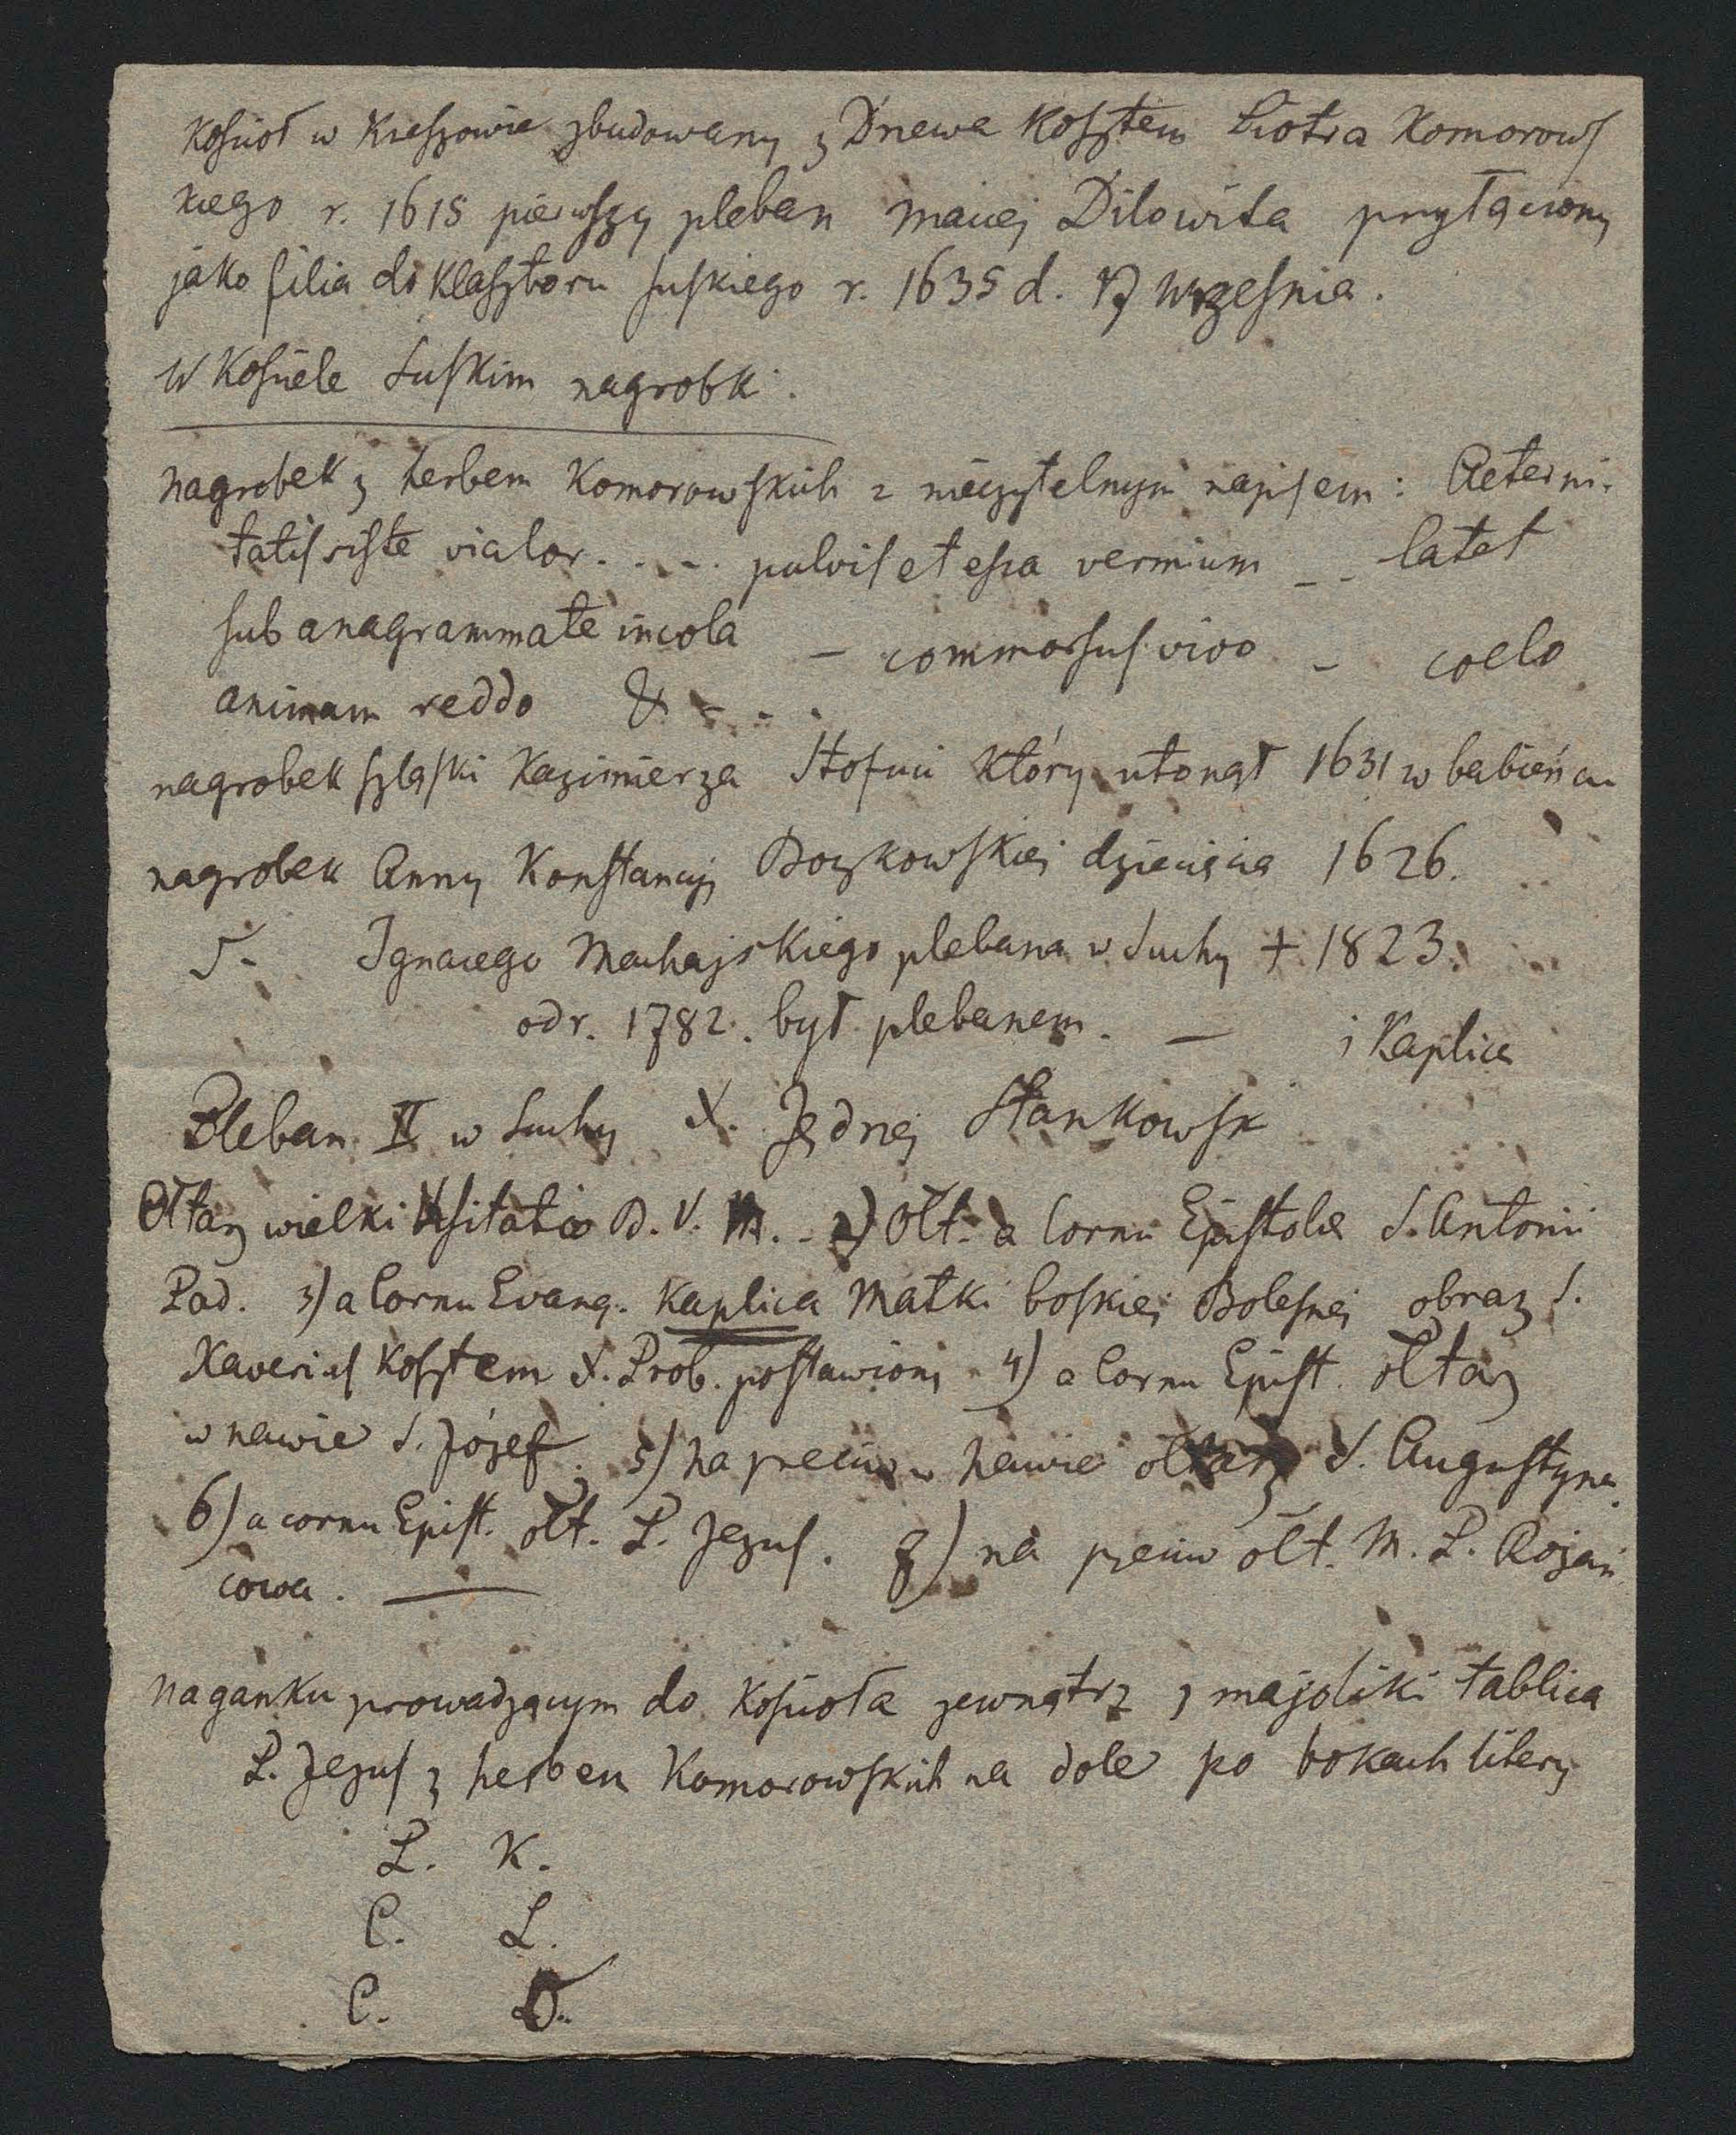 Kościoł w Krzeszowie zbudowany z Drzewa kosztem Piotra Komorows
kiego r. 1618 pierwszy pleban Maciej Dilowita przyłączony
jako filia do klasztoru suskiego r. 1635 d. 17 września.
W Kościele Suskim nagrobki.
nagrobek z herbem Komorowskich z nieczytelnym napisem: Aeterni-
tatis siste viator. . . . . pulvis et esca vermium _ _ latet
sub anagrammate incola – commorsus vivo – coelo
animam reddo & - - .
nagrobek szląski Kazimierza który utonął 1631 w
nagrobek Anny Konstancyj Boczkowskiej dziecięcia 1626.
Ignacego Machajskiego plebana w Suchy + 1823.
od r. 1782. był plebanem. —
i Kaplica
Pleban II w Suchy X. Jędrzej Stankowsk
Ołtarz wielki Visitatio B. V. M. - 2) Ołt. a Cornu Epistolae S. Antonii
Pad. 3) a Cornu Evang. Kaplica Matki boskiej Bolesnej obraz S.
Xaverius kosztem X. Prob. postawiony 4) a Cornu Epist. ołtarz
w nawie S. Józef. 5) na przeciw w nawie ołtarz S. Augustyna
6) a cornu Epist. ołt. P. Jezus. 7) na przeciw ołt. M. P. Rożań
cowa. —
na ganku prowadzącym do Kościoła zewnątrz z majoliki tablica
P. Jezus z herbem Komorowskich na dole po bokach litery
P. K.
C. L.
C. O.